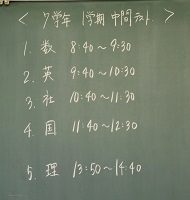 < 7学年 1学期 中間テスト >
1. 数 8:40〜9:30
2. 英 9:40〜10:30
3. 社 10:40〜11:30
4. 国 11:40〜12:30
5. 理 13:50〜14:40